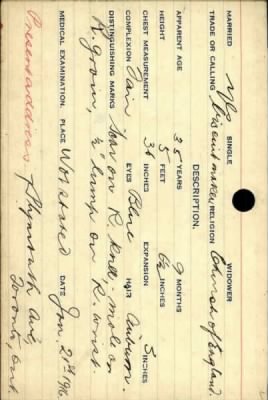 MARRIED yes SINGLE WIDOWER
TRADE OR CALLING Biscuit maker RELIGION Church of England.
DESCRIPTION.
APPARENT AGE 35 YEARS 9 MONTHS
HEIGHT 5 FEET 6½ INCHES
CHEST MEASUREMENT 34 INCHES EXPANSION 5 INCHES
COMPLEXION Fair EYES Blue HAIR Auburn.
DISTINGUISHING MARKS Scar on R. knee, mole on
R. groin, ½" lump on R. wrist.
MEDICAL EXAMINATION. PLACE Not stated DATE Jan. 21st 1916
Present address Plymouth Ave,
Toronto, Ont.